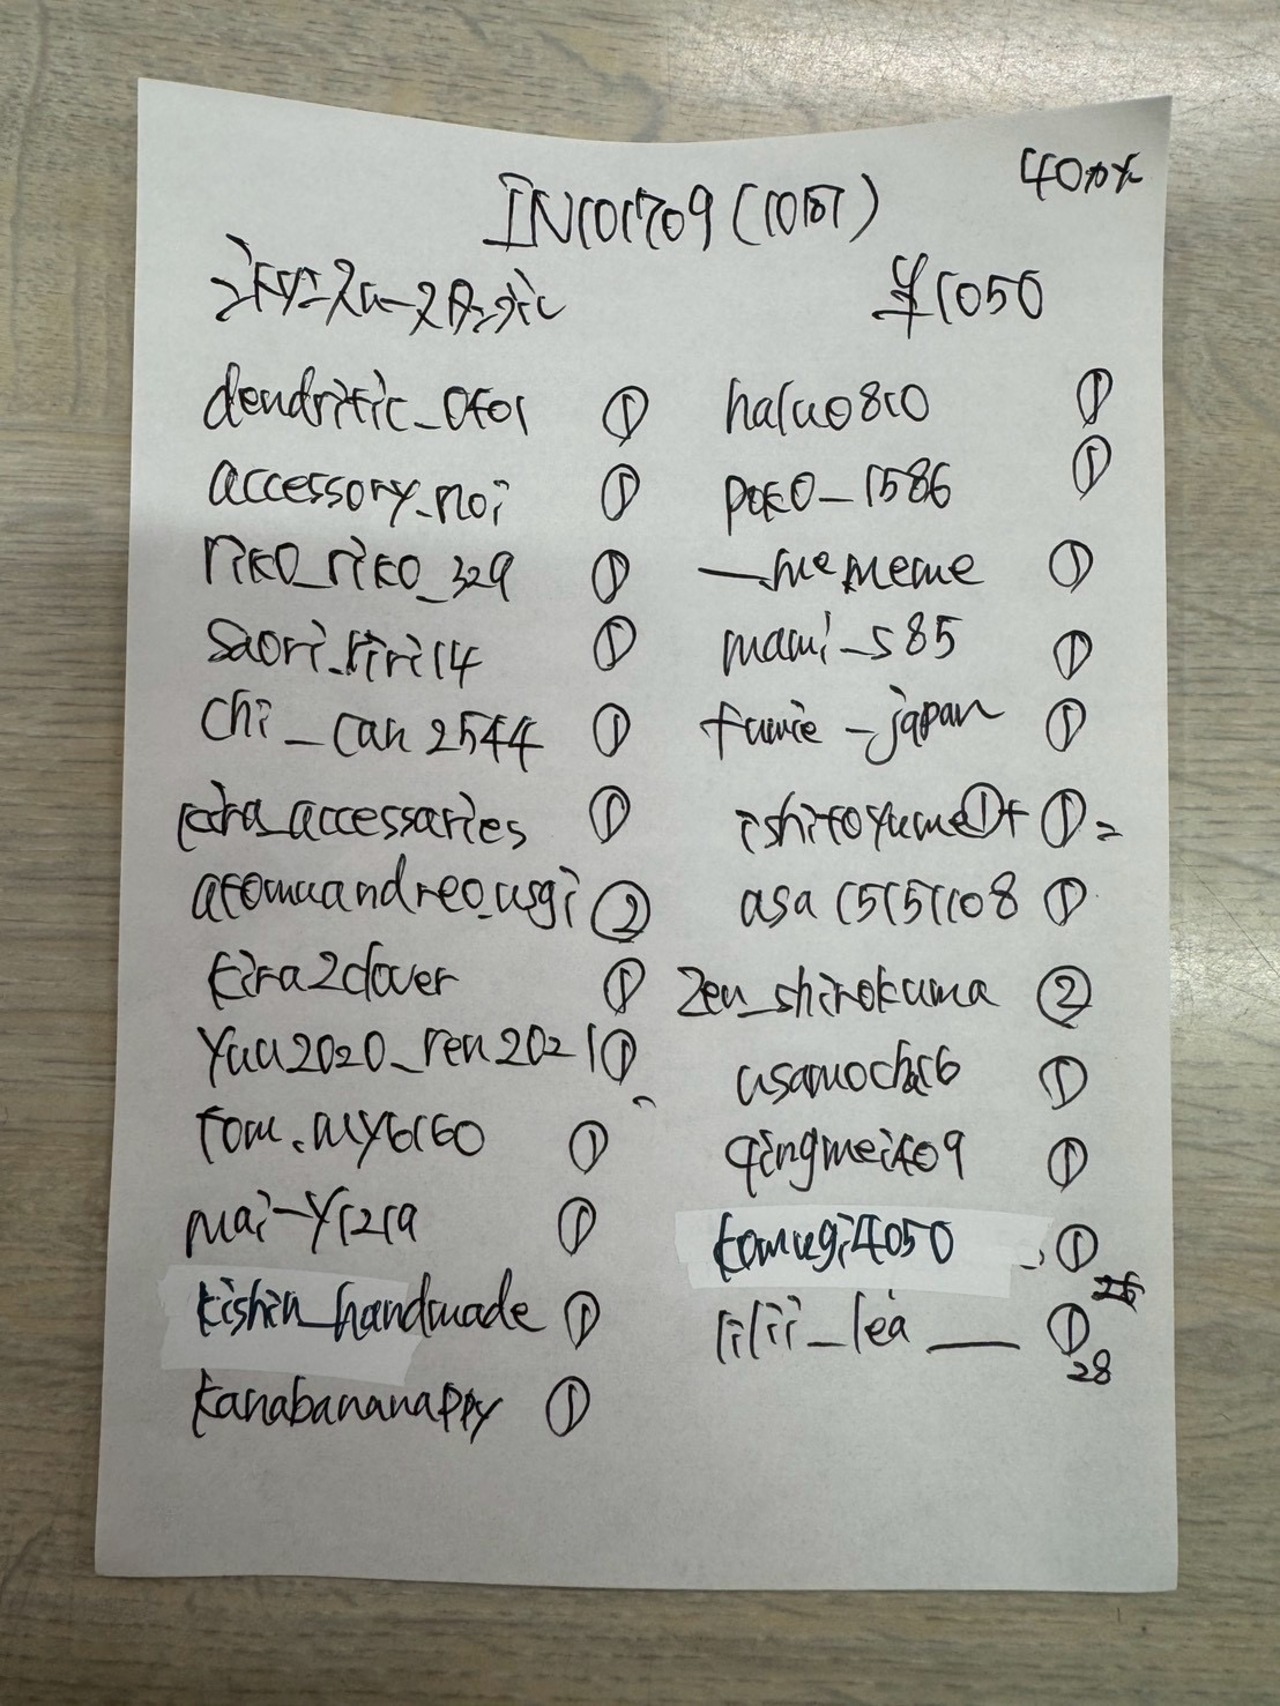 IN101709(1017)
40mix
¥1050
dendritic_0401 ①
accessory_noi ①
riko_riko_329 ①
saori_riri14 ①
chi_can2544 ①
accessaries ①
atomuandreo_usgi ②
kira2clover ①
yuu2020_ren2021 ①
tom.my6160 ①
mai-y1219 ①
kishin_handmade ①
kanabananappy ①
haluo810 ①
poko_1586 ①
__mememe ①
mami_s85 ①
fumie_japan ①
ishitoyume①+①=
asa15151108 ①
zen_shirokuma ②
qingmei409 ①
komugi4050 ①
lilii_lea__ ①
28